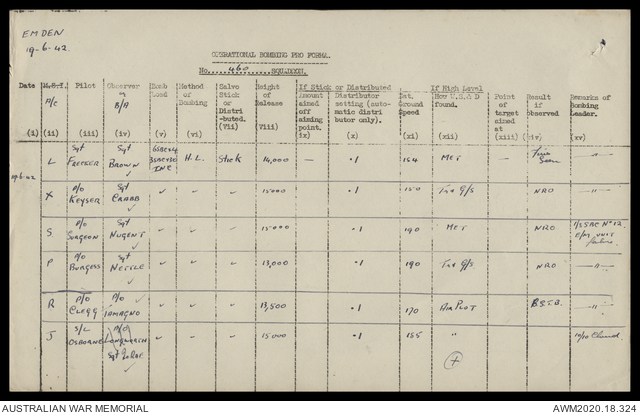 EMDEN
19-6-42.
OPERATIONAL BOMBING PRO FORMA.
No. 460 SQUADRON.
Date (i)
A/C (ii)
Pilot (iii)
Observer or B/A (iv)
Bomb Load (v)
Method of Bombing (vi)
Salvo Stick or Distributed. (Vii)
Height of Release (Viii)
If Stick or Distributed
Amount aimed off aiming point. ix)
Distributor setting (automatic distributor only). (x)
Est. Ground Speed (xi)
If High Level
How W.S. & D found. (xii)
Point of target aimed at (xiii)
Result if observed
Remarks of Bombing Leader. (xv)
L Sgt FRECKER Sgt BROWN INC H.L. Stick 14,000 — .1 154 MET — Seen —"—
19.6.42
X P/O KEYSER Sgt CRABB 15000 .1 150 G/S NRO
S P/O SURGEON Sgt NUGENT 15000 .1 190 MET NRO UNIT failure.
P P/O BURGESS Sgt NETTLE 13,000 .1 190 G/S NRO —"—
R P/O CLEGG P/O TAMAGNO 13,500 .1 170 AIR PLOT —"—
J S/L OSBORNE P/O LONGWORTH Sgt 15000 .1 155 " 10/10 Cloud.
+
AUSTRALIAN WAR MEMORIAL
AWM2020.18.324